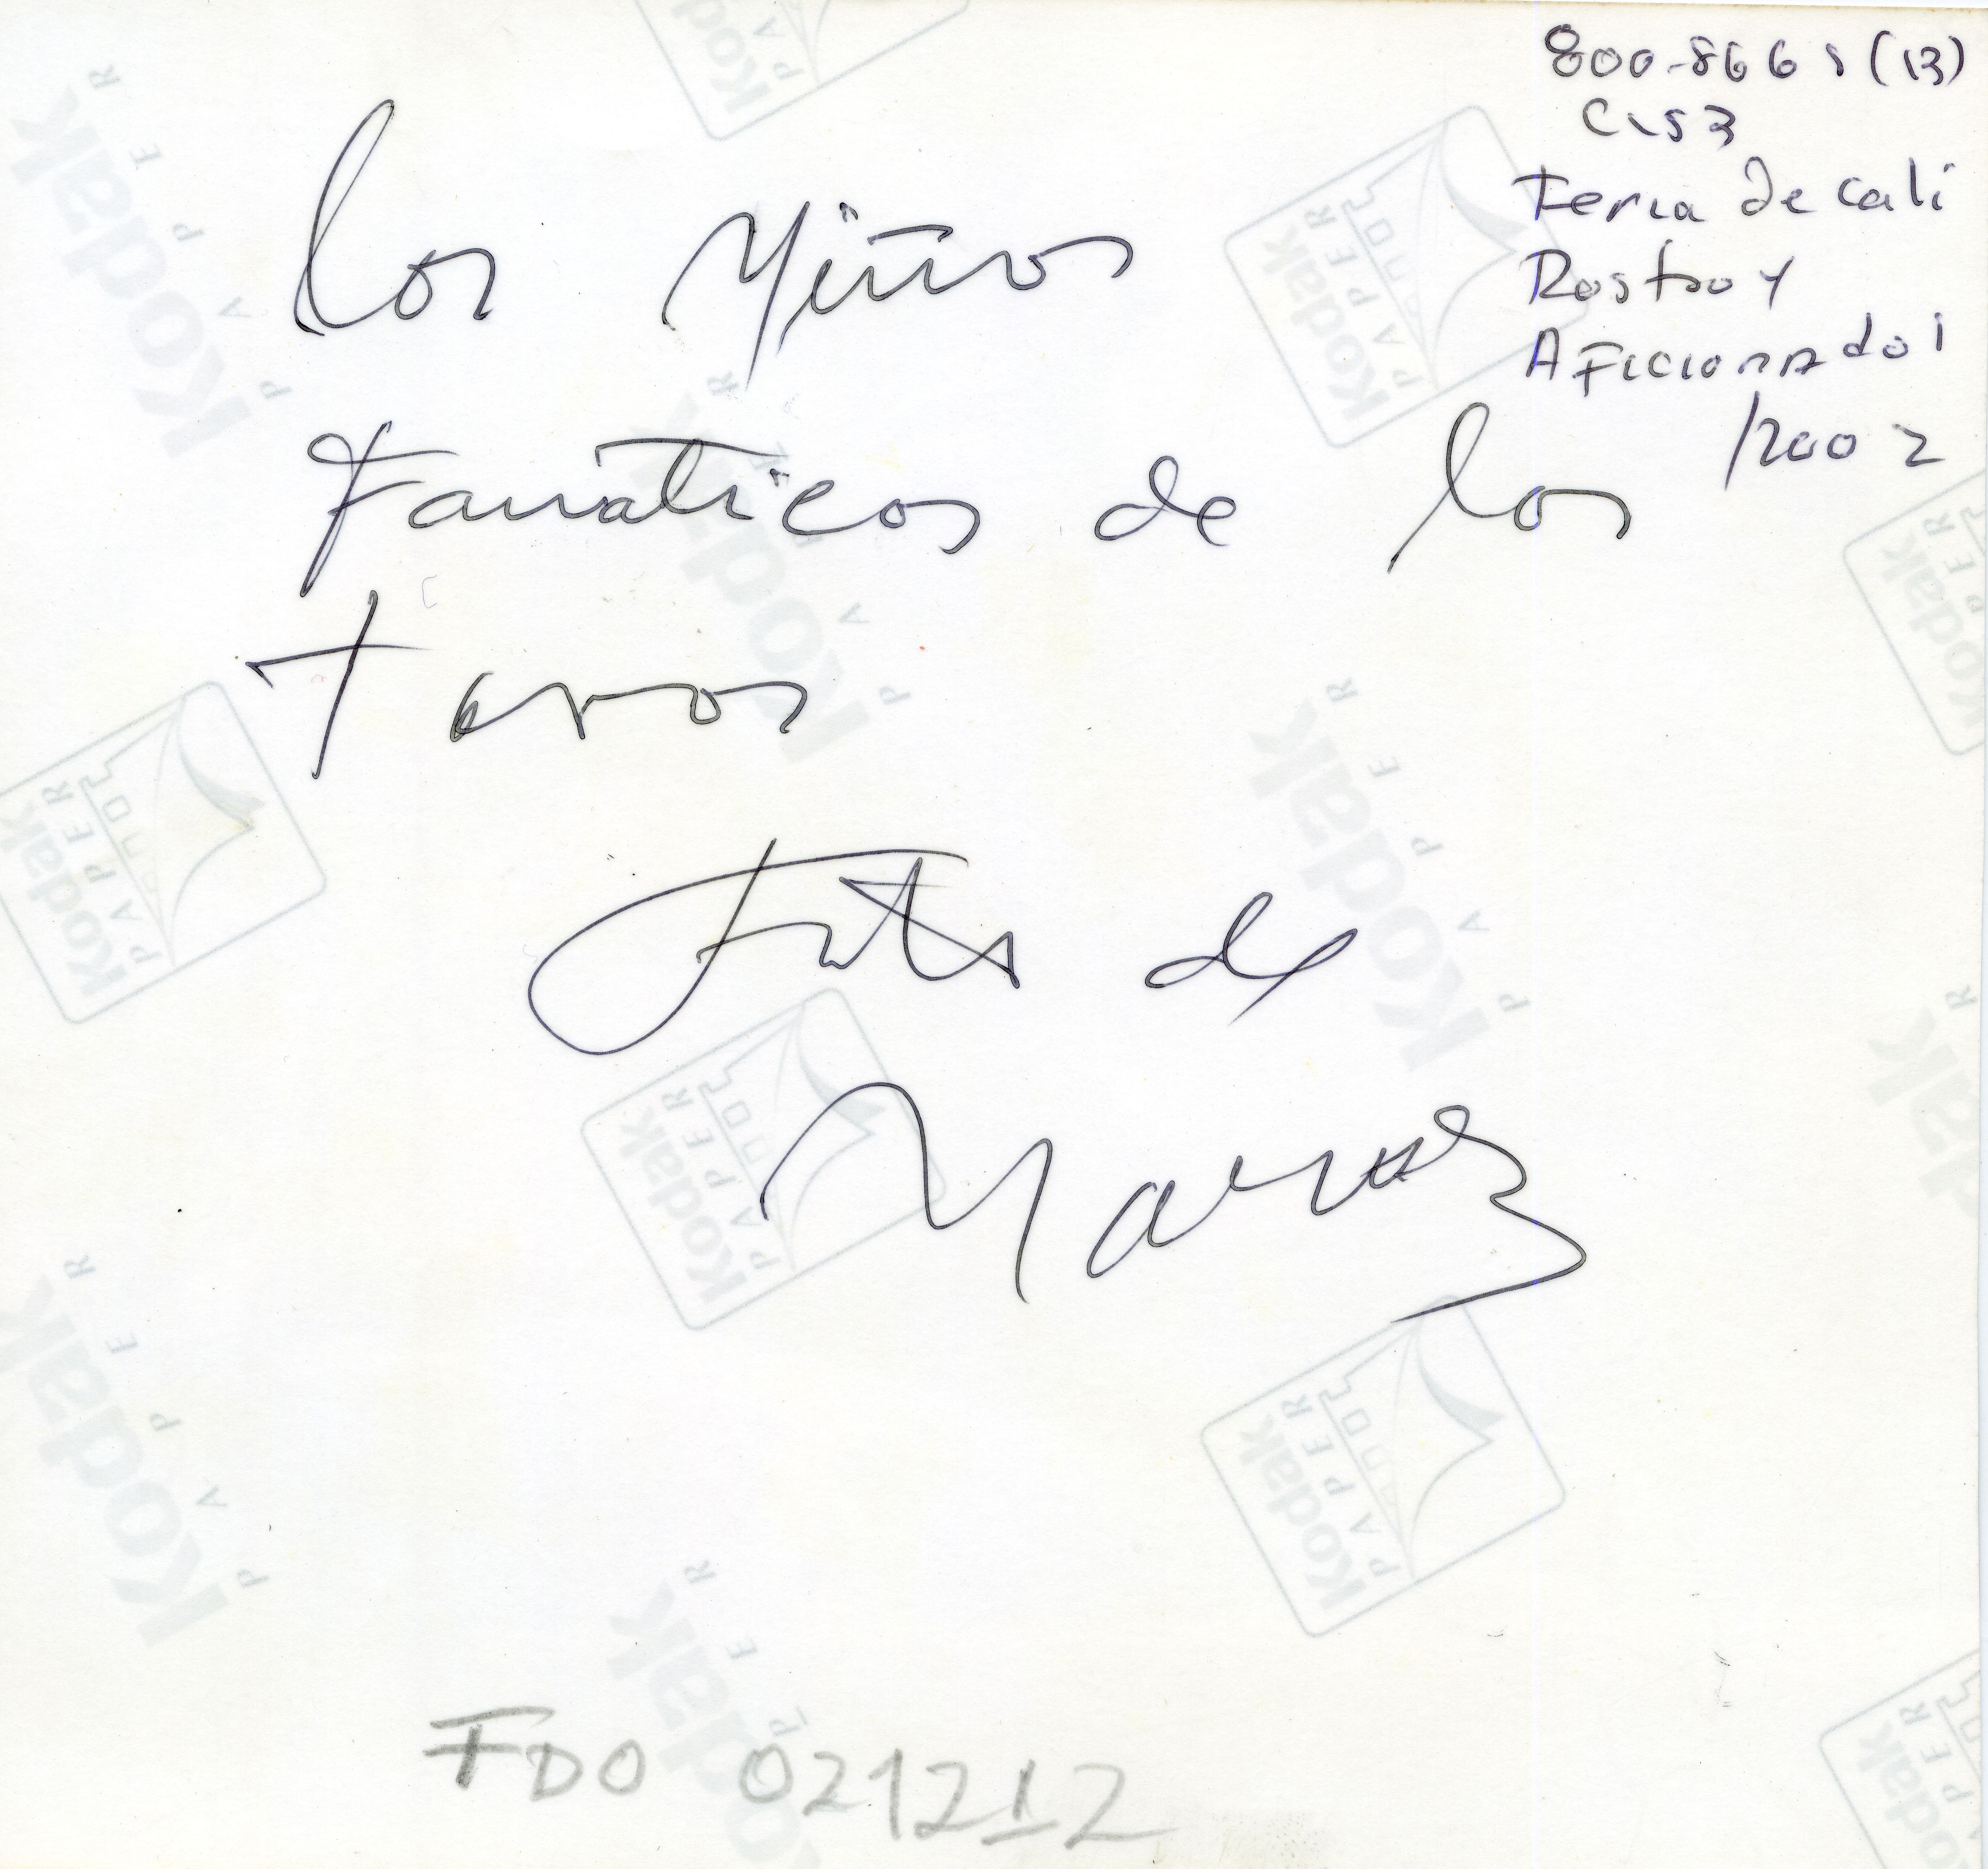 800-8668 (13)
C153
Feria de cali
Rostro y
Aficionado 1
/2002
Los Niños
Fanáticos de los
toros
Foto de
FDO 021212
Kodak
PAPER